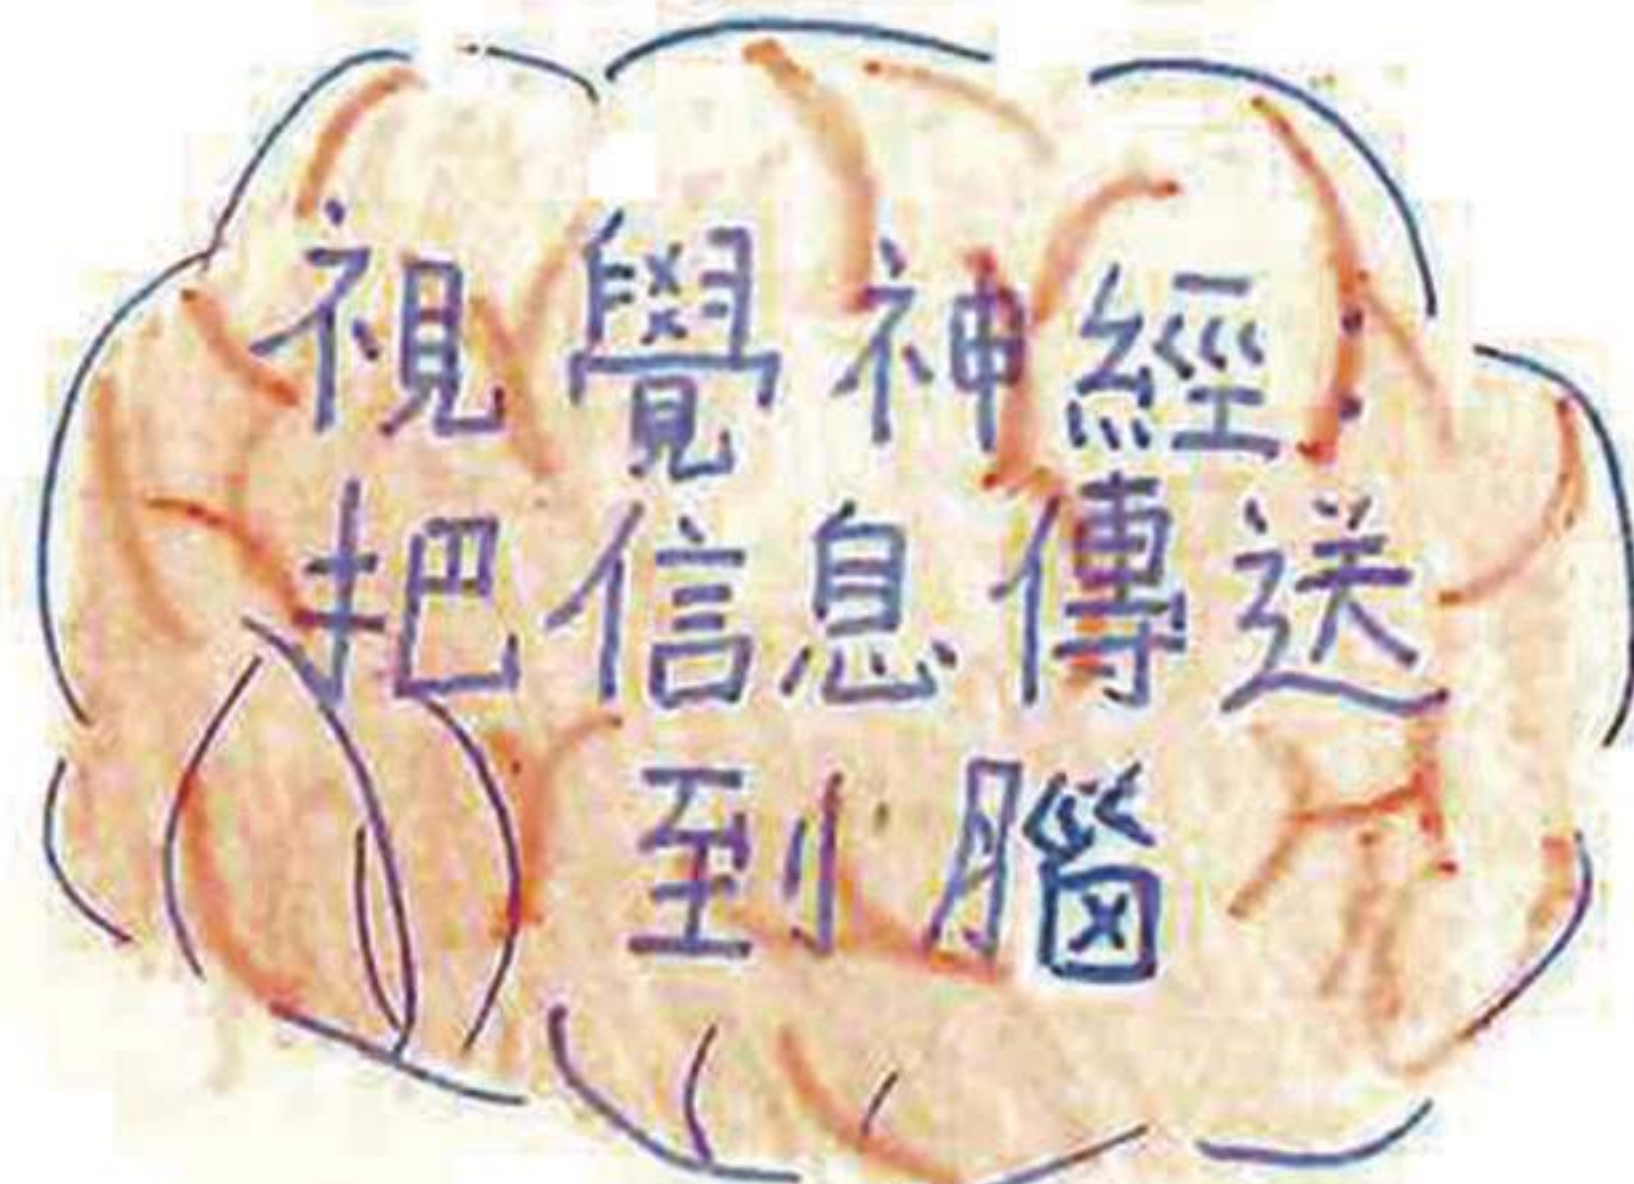 視覺神經:
把信息傳送
到腦